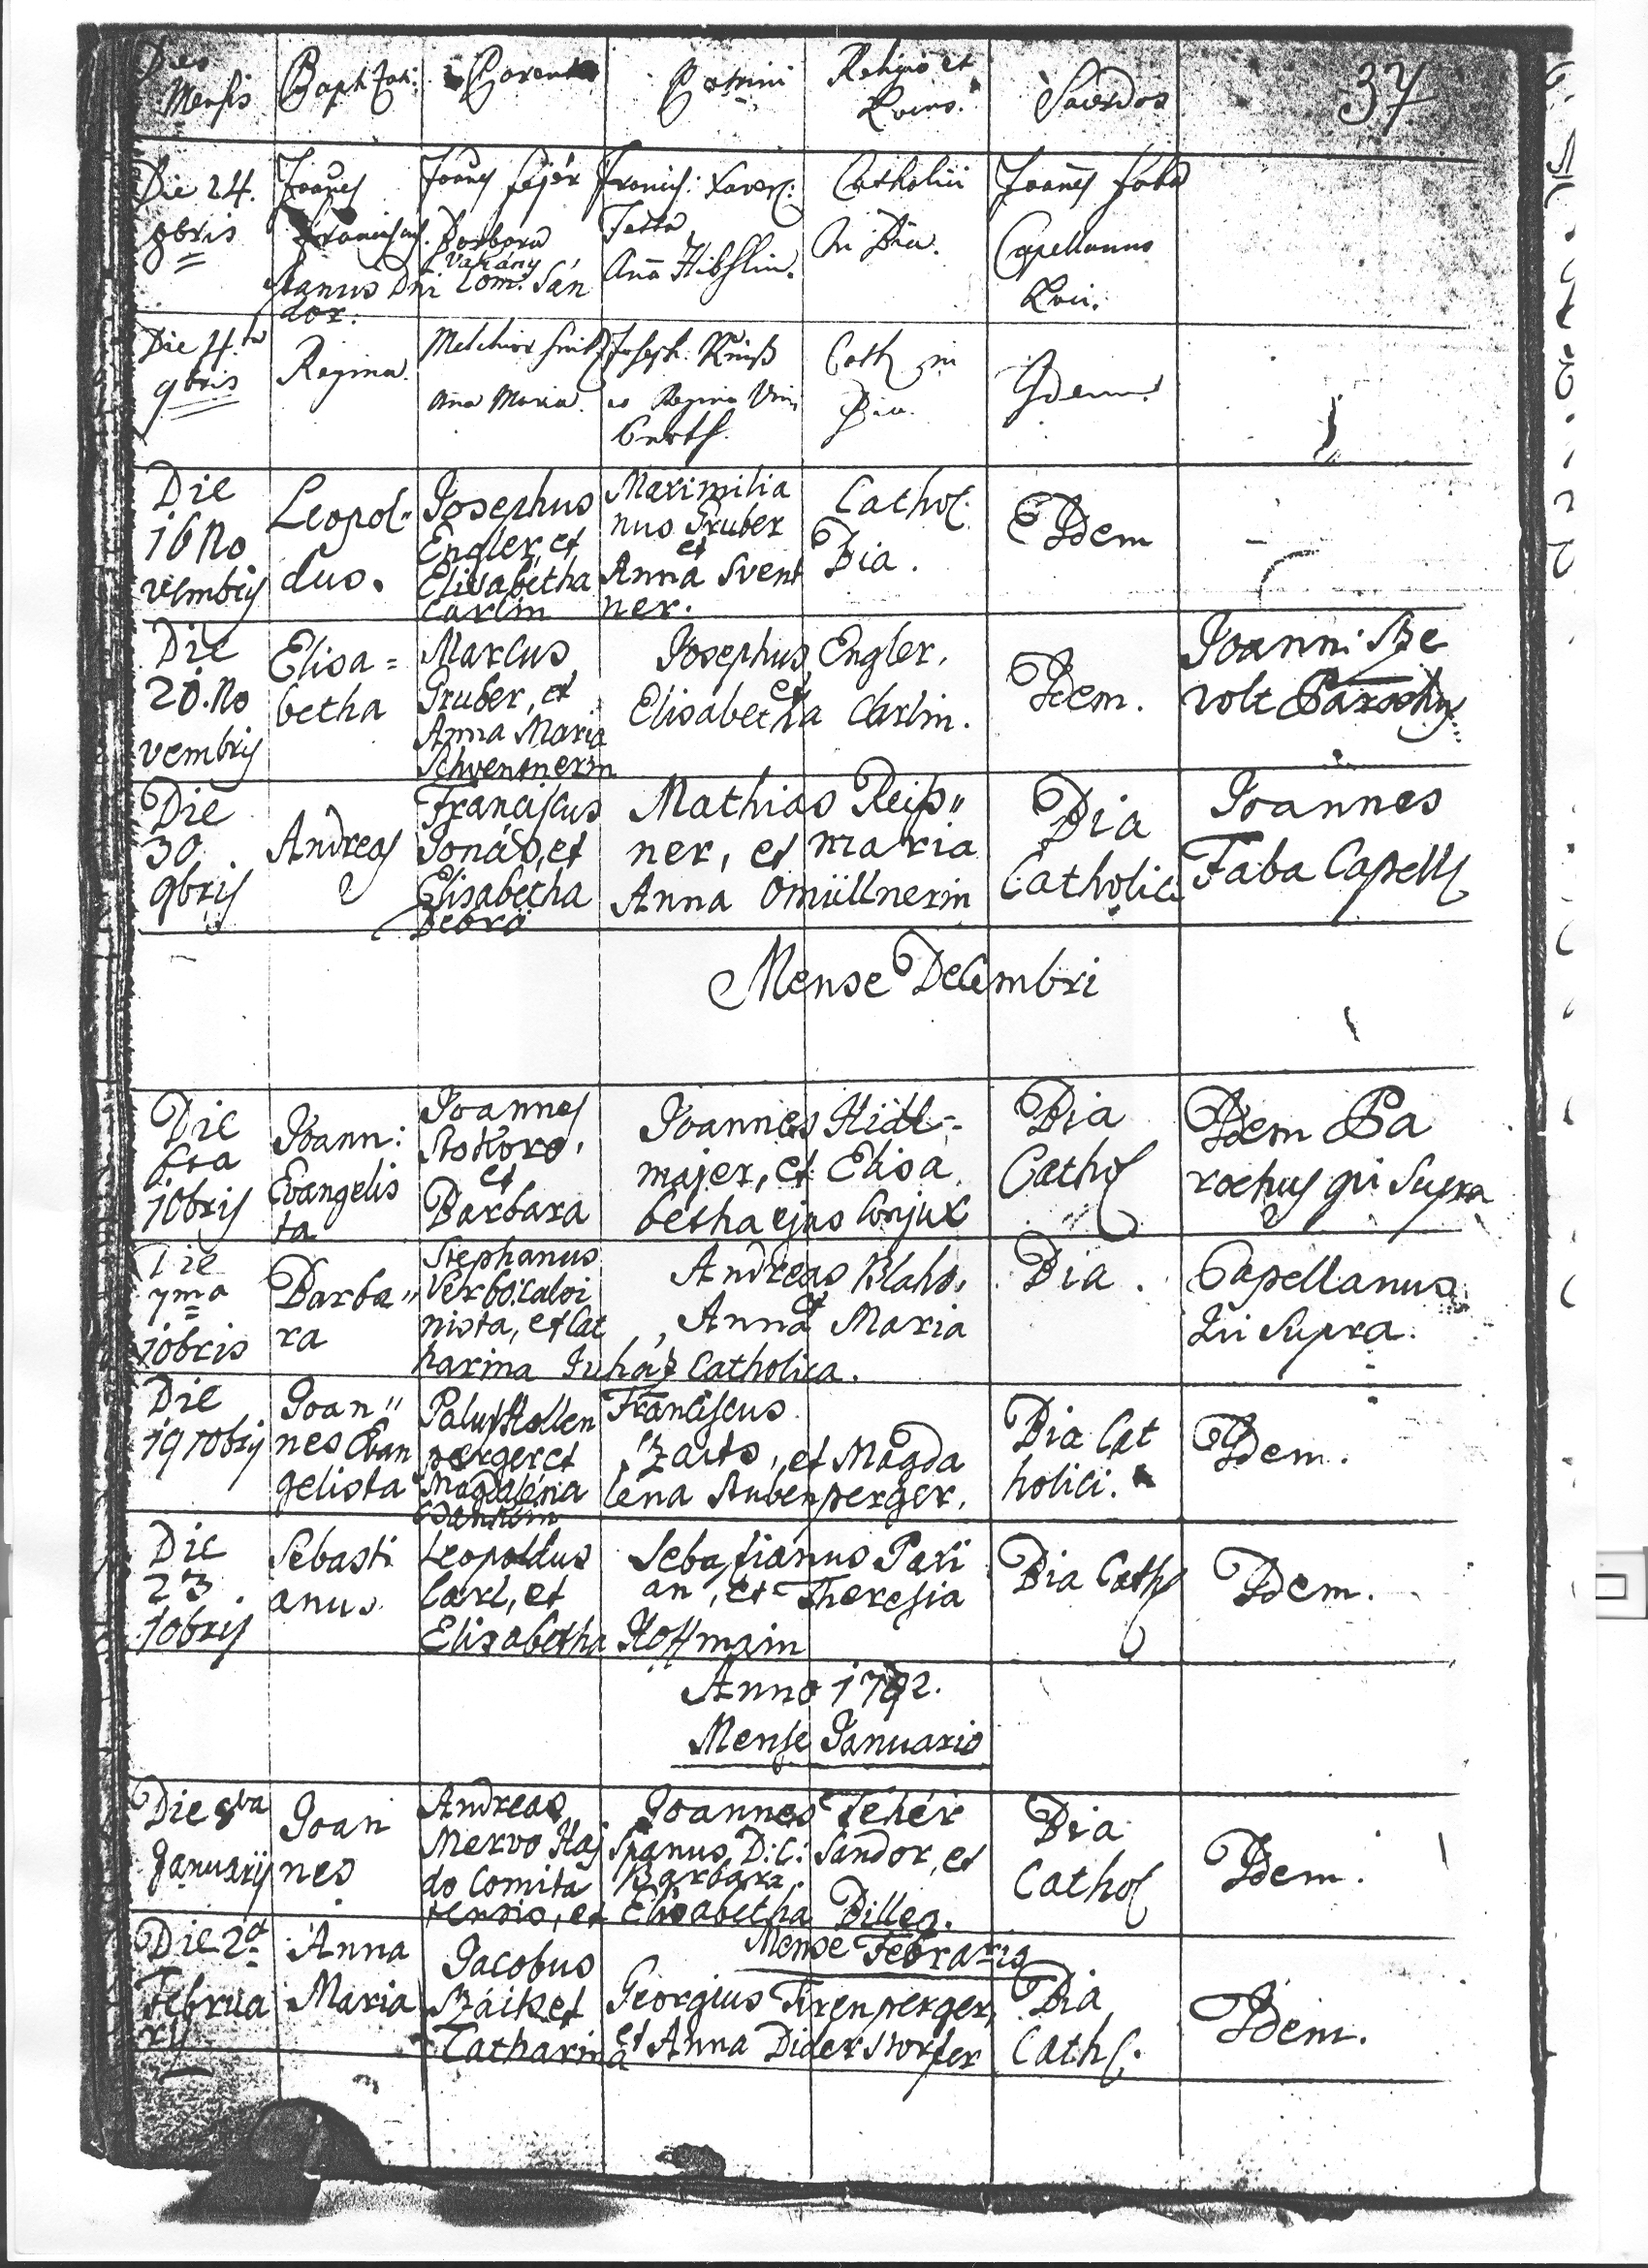 Dies Mensis
Baptizati:
Parentes
Patrini
Religio et Locus.
Sacerdos
37
Die 24.
8bris
Joanes
Franciscus.
Joanes Fejér
Barbara
Vakány
Spanus Dni Com. Sán
dor.
Francis: Xaver:
Anna
Catholici
In Bia.
Joanes Faba
Capellanus
Loci.
Die 4ta
9bris
Regina.
Melchior
Anna Maria.
Joseph:
Regina
Cath in
Bia.
Idem
Die
16 No
vembris
Leopol"
dus.
Josephus
Engler, et
Elisabetha
Carlin
Maximilia
nus Gruber
et
Anna Svent
ner.
Cathol.
Bia.
Idem
Die
20. No
vembris
Elisa=
betha
Marcus
Gruber, et
Anna Maria
Schventnerin
Josephus Engler,
et
Elisabetha Carlin.
Idem.
Joann: Sze
volt Parochus
Die
30.
9bris
Andreas
Franciscus
Jonás, et
Elisabetha
Debrö
Mathias Reiss"
ner, et maria
Anna Omüllnerin
Bia
Catholici
Joannes
Faba Capell
Mense Decembri
Die
6ta
10bris
Joann:
Evangelis
ta
Joannes
Stokoro,
et
Barbara
Joannes Hidl=
majer, et Elisa
betha ejus Conjux
Bia
Cathol
Idem Pa
rochus qui Supra
Die
7ma
10bris
Barba"
ra
Stephanus
Verbo: Calvi
nista, et Cat
harina Juhász Catholica.
Andreas Blaho,
et
Anna Maria
Bia.
Capellanus
Qui Supra.
Die
19 10bris
Joan"
nes Evan
gelista
Palus Hollen
perger et
Magdaléna
Franciscus
Zaits, et Magda
lena Aubenperger.
Bia Cat
holici.
Idem.
Die
23
10bris
Sebasti
anus
Leopoldus
Carl, et
Elisabetha Hoffmain
Sebastianus Pari
an, et Theresia
Bia Cath
Idem.
Anno 1792.
Mense Januario
Die 8va
Januarij
Joan
nes
Andreas
Mervo Haj
do Comita
tensis, et
Elisabetha Billeg.
Joannes Fehér
Spanus D: C: Sándor, et
Barbara
Bia
Cathol
Idem.
Mense Februario
Die 2da
Februa
rij
Anna
Maria
Jacobus
Száik et
Catharina
Georgius Tirenperger,
et Anna Diderstorfer
Bia
Cath.
Idem.